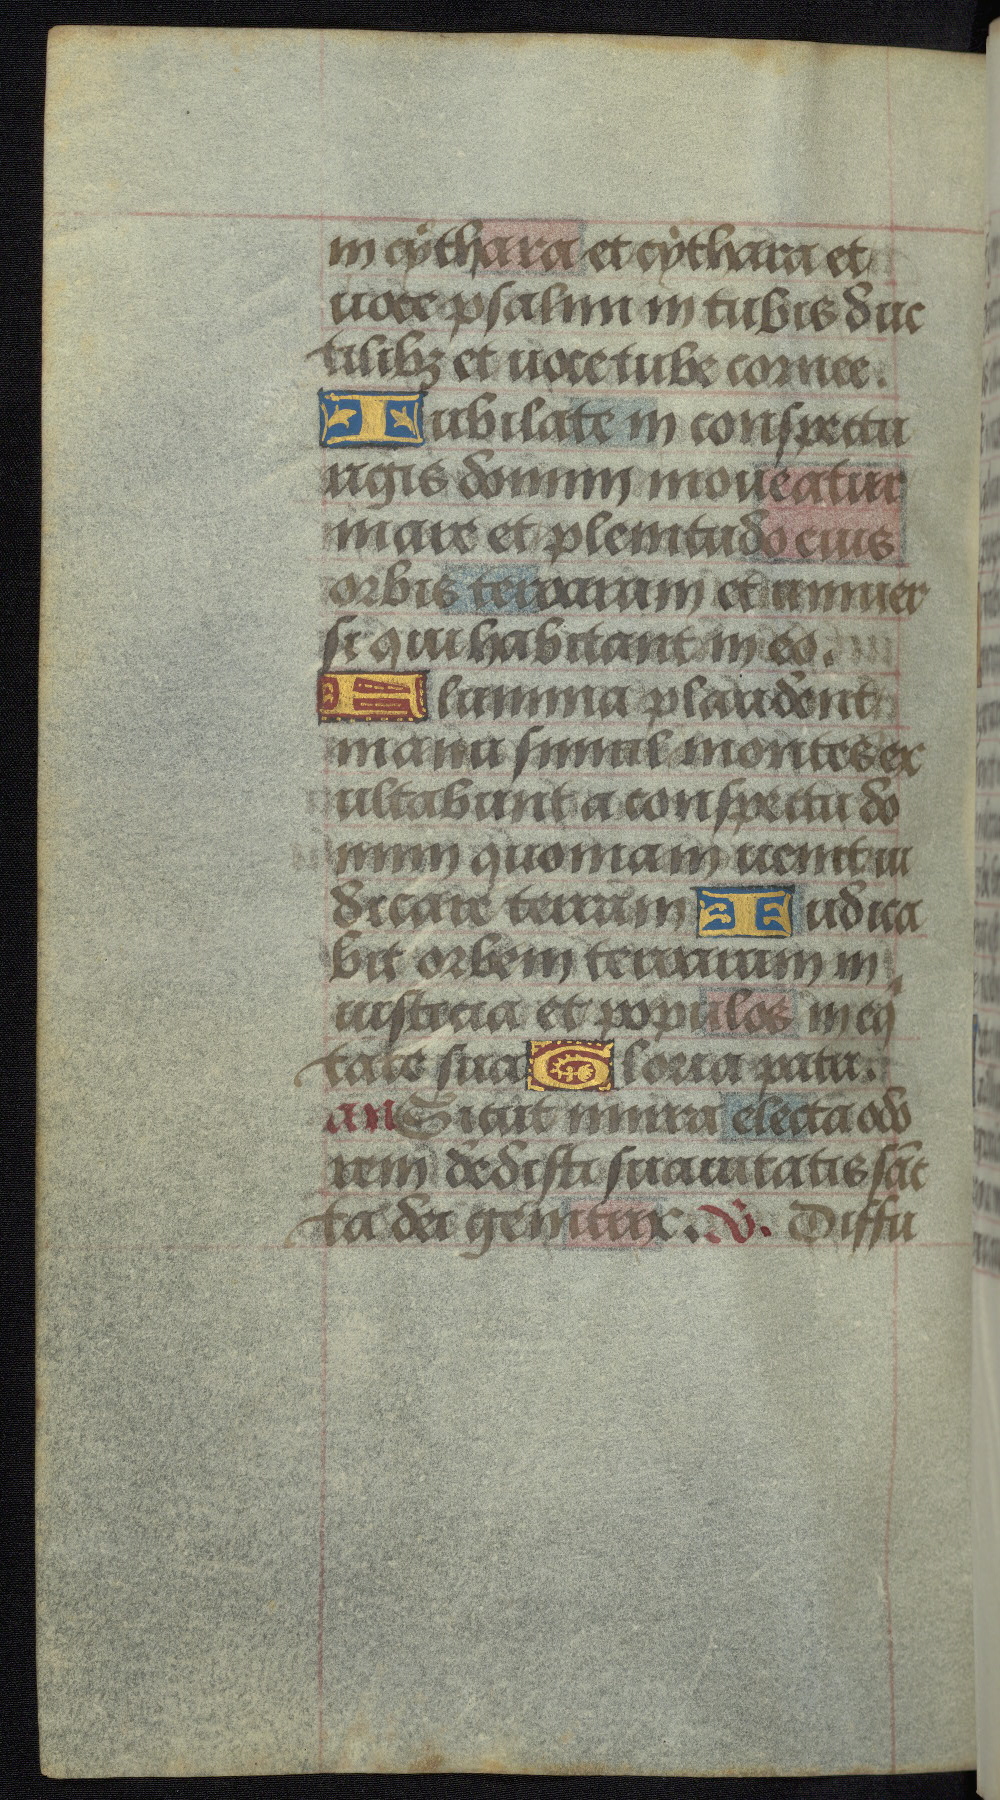 in cẏthara et cẏthara et
uoce psalmi in tubis duc
tilibꝫ et uoce tube cornee.
Iubilate in conspectu
regis domini moueatur
mare et plenitudo eius
orbis terrarum et uniuer
si qui habitant in eo.
Flumina plaudent
manu simul montes ex
ultabunt a conspectu do
mini quoniam uenit iu
dicare terram Iudica
bit orbem terrarum in
iusticia et populos in eq̄
tate sua Gloria patri.
an Sicut mirra electa odo
rem dedisti suauitatis sāc
ta dei genitrix. ℣. Diffu